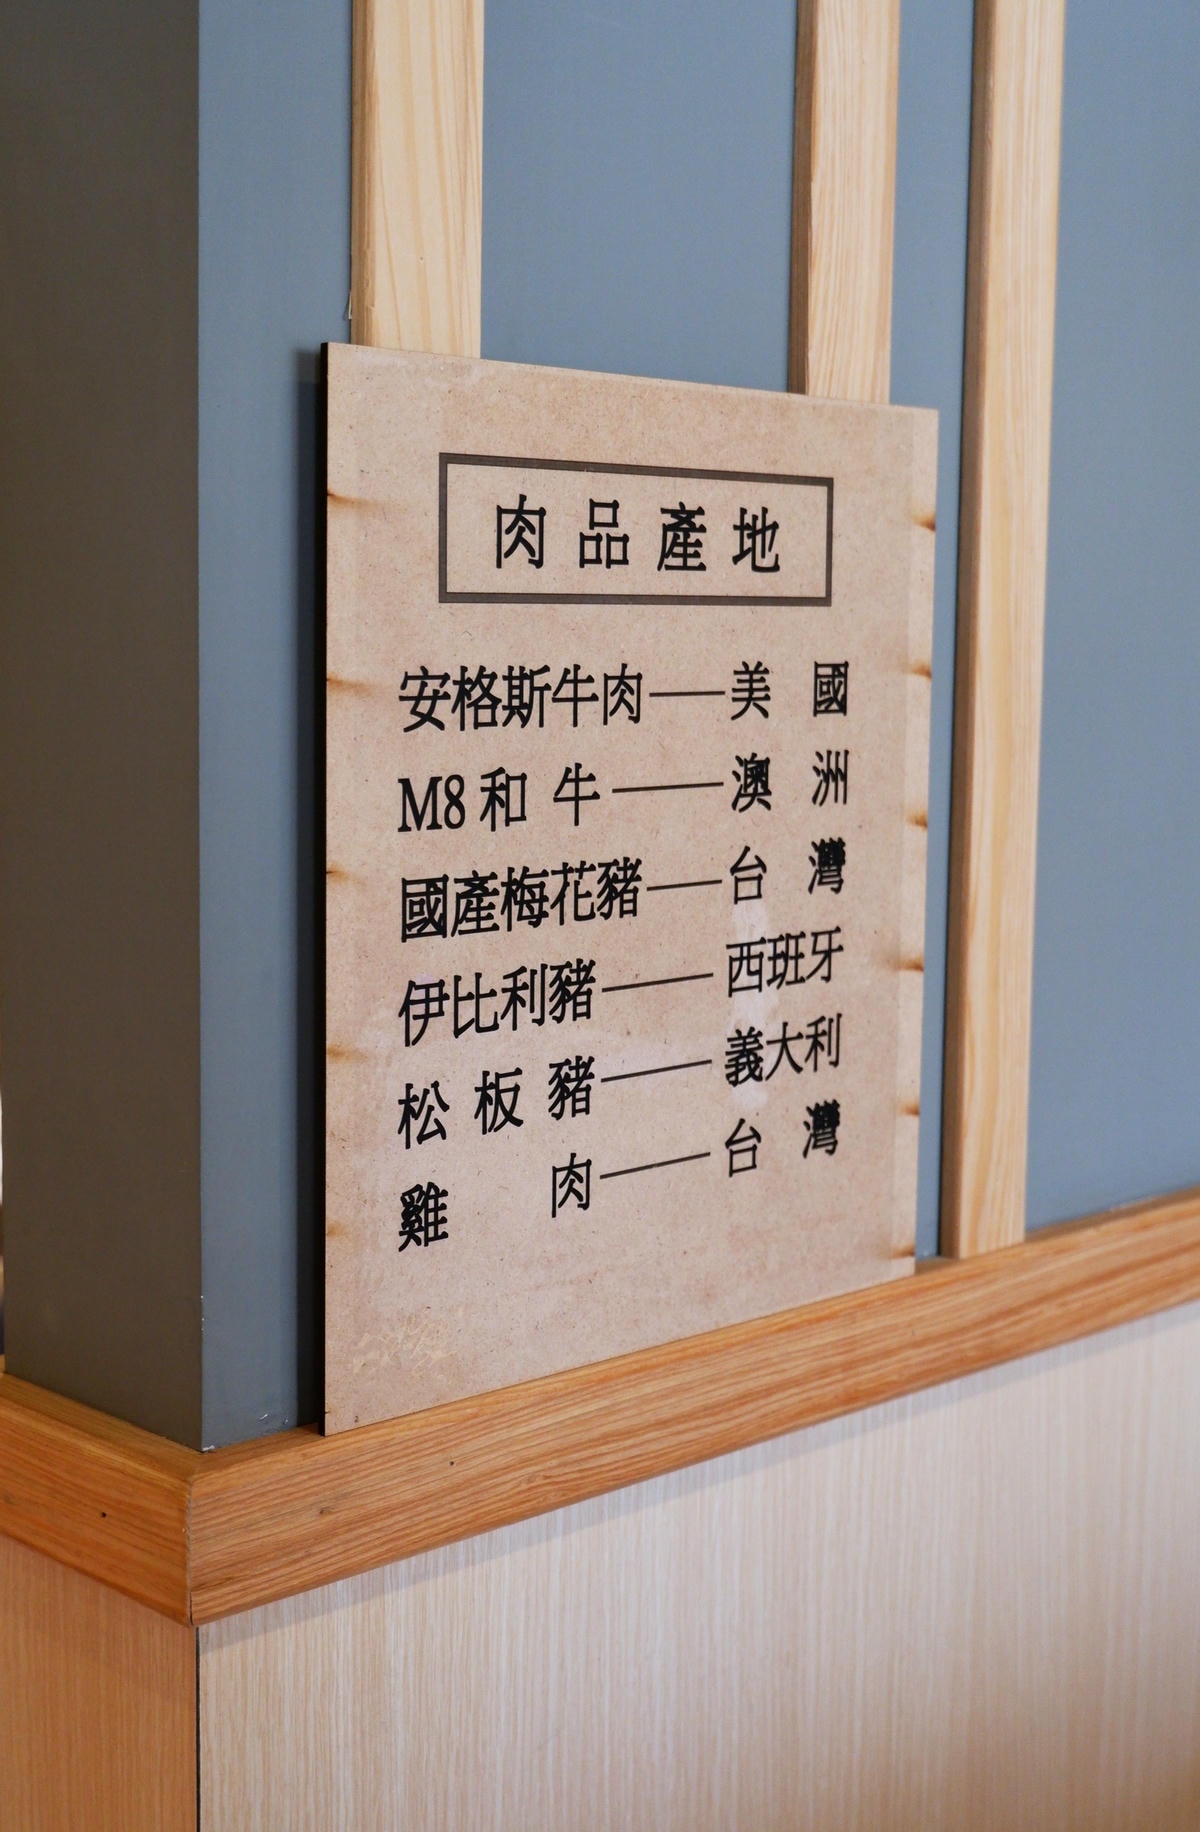 肉品產地
安格斯牛肉——美國
M8和牛——澳洲
國產梅花豬——台灣
伊比利豬——西班牙
松板豬——義大利
雞肉——台灣